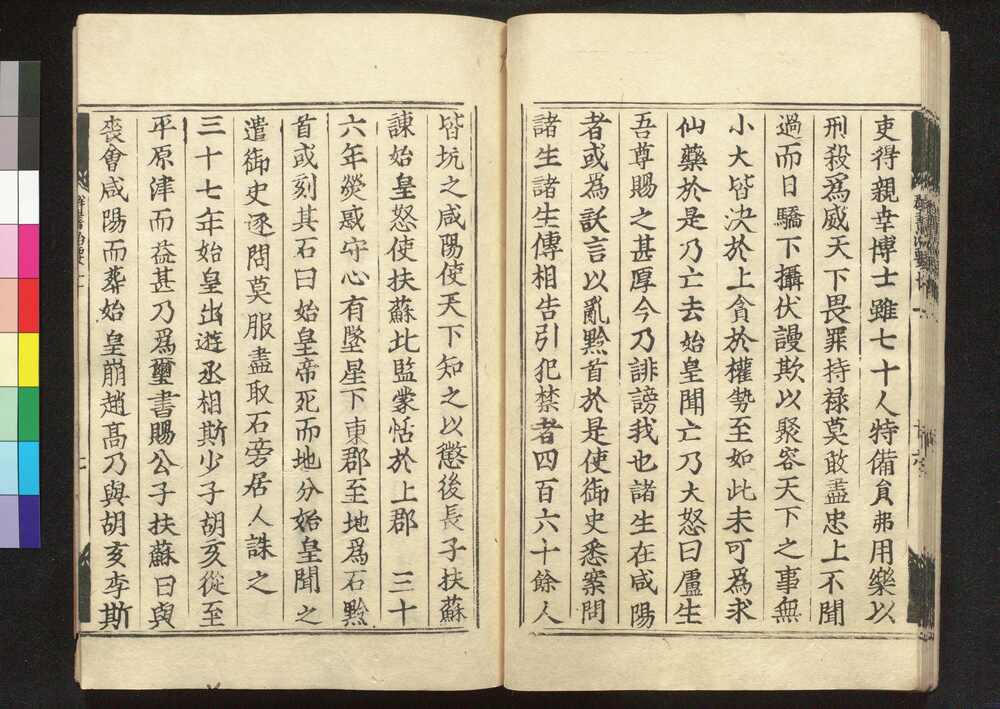 吏得親幸博士雖七十人特備負弗用樂以
刑殺爲威天下畏罪持禄莫敢盡忠上不聞
過而日驕下攝伏謾欺以聚容天下之事無
小大皆決於上貪於權勢至如此未可爲求
仙藥於是乃亡去始皇聞亡乃大怒曰盧生
吾尊賜之甚厚今乃誹謗我也諸生在咸陽
者或爲訞言以亂黔首於是使御史悉案問
諸生諸生傳相告引犯禁者四百六十餘人
皆坑之咸陽使天下知之以懲後長子扶蘇
諫始皇怒使扶蘇北監蒙恬於上郡　三十
六年熒惑守心有墜星下東郡至地爲石黔
首或刻其石曰始皇帝死而地分始皇聞之
遣御史逐問莫服盡取石旁居人誅之
三十七年始皇出遊丞相斯少子胡亥從至
平原津而益甚乃爲璽書賜公子扶蘇曰與
喪會咸陽而葬始皇崩趙高乃與胡亥李斯